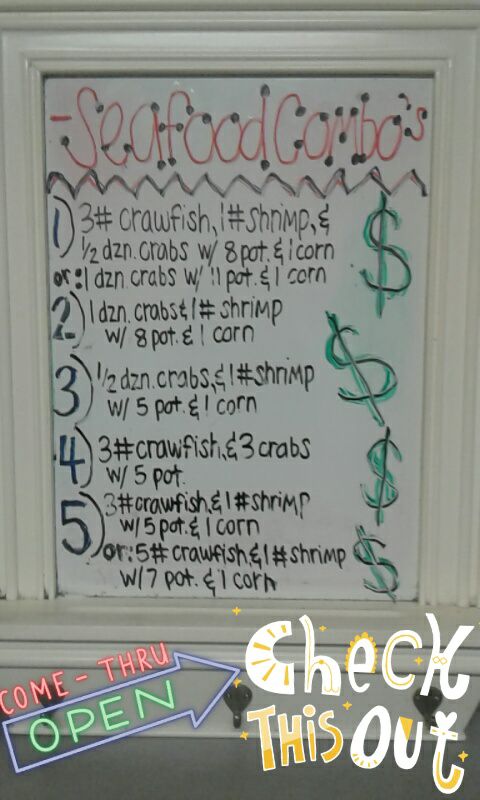 -Seafood Combo's
1) 3# crawfish, 1# shrimp, &
1/2 dzn. crabs w/ 8 pot. & 1 corn
or: 1 dzn. crabs w/ 11 pot & 1 corn
2) 1 dzn. crabs & 1# shrimp
w/ 8 pot. & 1 corn
3) 1/2 dzn. crabs, & 1# shrimp
w/ 5 pot. & 1 corn
4) 3# crawfish, & 3 crabs
w/ 5 pot.
5) 3# crawfish, & 1# shrimp
w/ 5 pot. & 1 corn
or: 5# crawfish, & 1# shrimp
w/ 7 pot. & 1 corn
$
$
$
$
COME-THRU
OPEN
Check
THIS OUT